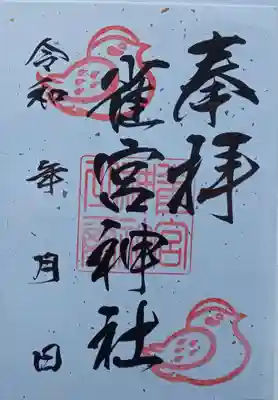 奉拝
雀宮神社
令和 年 月 日